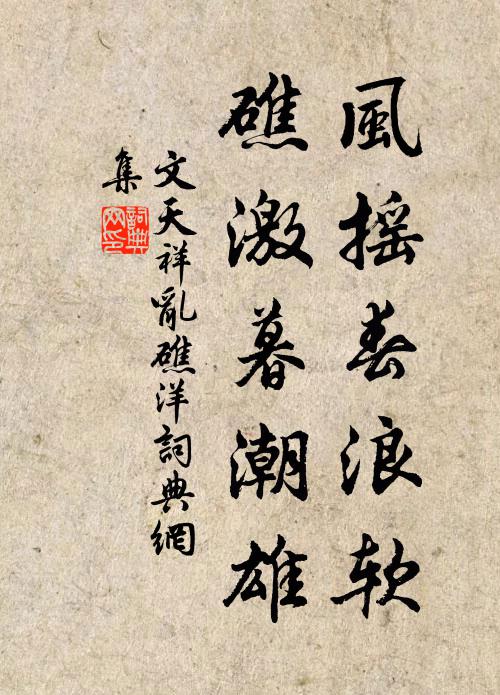 風摇春浪軟
礁激暮潮雄
文天祥亂礁洋詞典網
集
詞典
网印